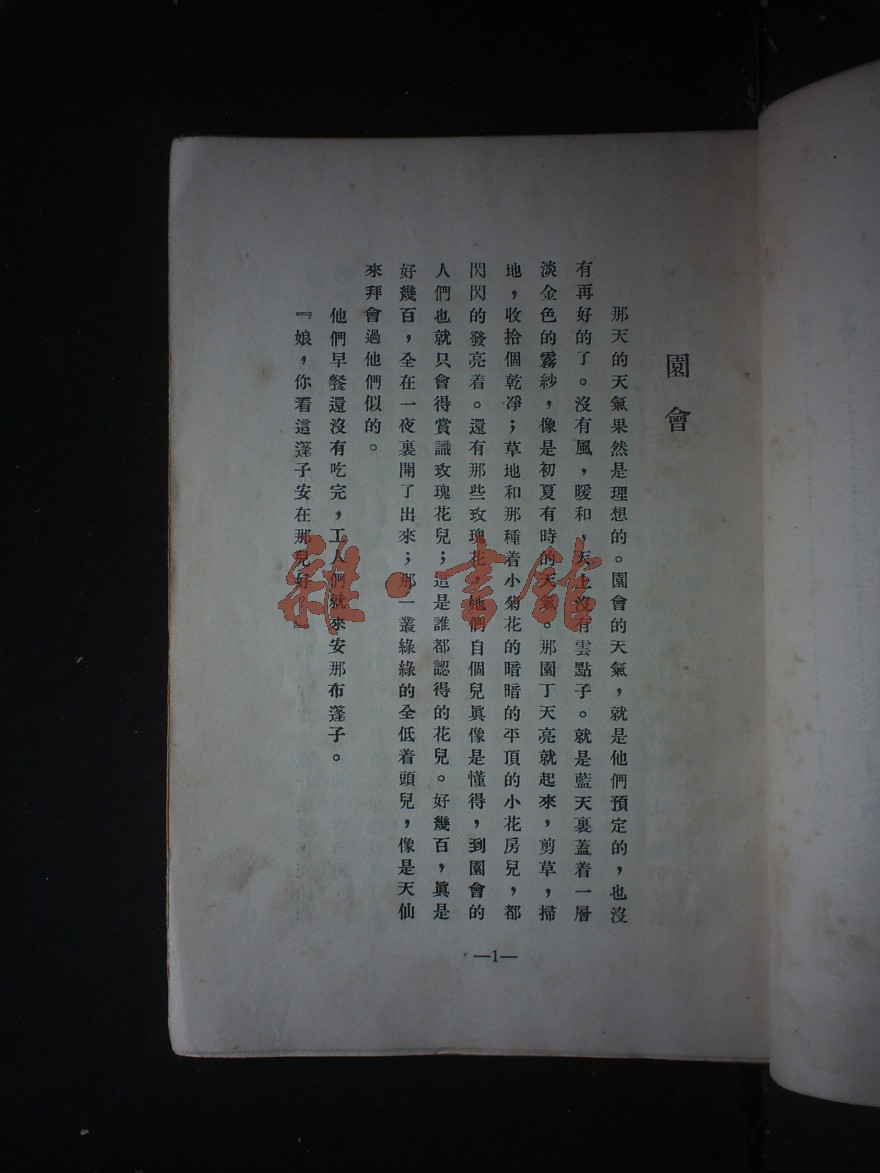 園會
那天的天氣果然是理想的。園會的天氣，就是他們預定的，也沒
有再好的了。沒有風，暖和，天上沒有雲點子。就是藍天裏蓋着一層
淡金色的霧紗，像是初夏有時的天氣。那園丁天亮就起來，剪草，掃
地，收拾個乾淨；草地和那種着小菊花的暗暗的平頂的小花房兒，都
閃閃的發亮着。還有那些玫瑰花，她們自個兒眞像是懂得，到園會的
人們也就只會得賞識玫瑰花兒；這是誰都認得的花兒。好幾百，眞是
好幾百，全在一夜裏開了出來；那一叢綠綠的全低着頭兒，像是天仙
來拜會過他們似的。
他們早餐還沒有吃完，工人們就來安那布蓬子。
『娘，你看這蓬子安在那兒好？』
—1—
雜·書館